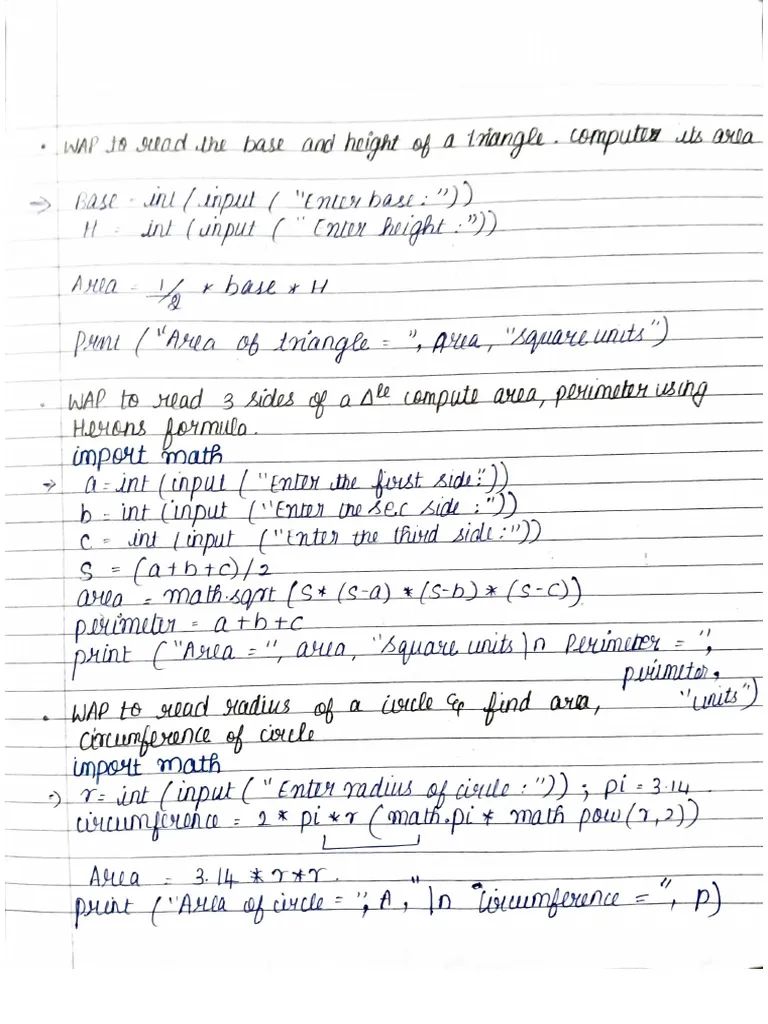 • WAP to read the base and height of a triangle. computes its area
→ Base = int (input ( "Enter base : "))
H = int (input ( " Enter height : "))
Area = 1/2 * base * H
Print ( "Area of triangle = ", Area, "square units")
• WAP to read 3 sides of a Δle compute area, perimeter using
Herons formula.
import math
→ a = int (input ( "Enter the first side:"))
b = int (input ("Enter the sec side : "))
c = int (input ("Enter the third side : "))
S = (a+b+c)/2
area = math.sqrt (S* (S-a) * (S-b) * (S-c))
perimeter = a+b+c
print ("Area = ", area, "square units \n Perimeter = ",
perimeter,
"units")
• WAP to read radius of a circle & find area,
circumference of circle
import math
→ r = int (input ( "Enter radius of circle : ")) ; pi = 3.14
circumference = 2 * pi * r (math.pi * math pow(r,2))
Area = 3.14 * r * r.
print ("Area of circle = ", A, "\n "circumference = ", p)